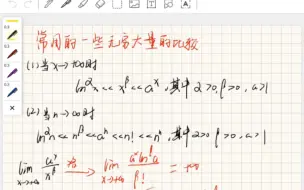 常用的一些无穷大量的比较
(1) 当x→+∞时
ln^α x << x^β << a^x, 其中 α>0, β>0, a>1
(2) 当n→∞时
ln^α n << n^β << a^n << n! << n^n, 其中 α>0, β>0, a>1
lim x→+∞ a^x/x^β 洛 lim x→+∞ a^x ln^β a/β! = +∞